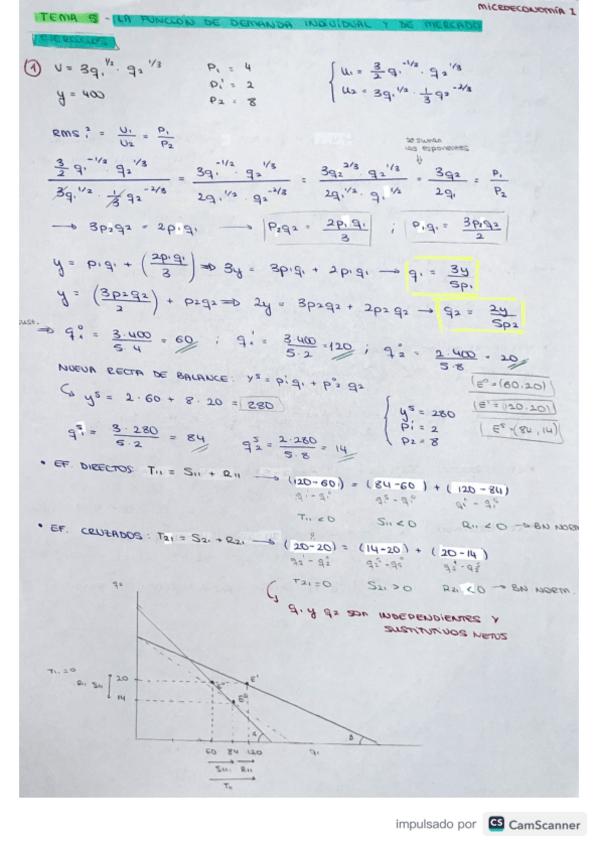 MICROECONOMÍA I
TEMA 5 - LA FUNCIÓN DE DEMANDA INDIVIDUAL Y DE MERCADO
EJERCICIOS
① U = 3q₁^1/2 · q₂^1/3    P₁ = 4    U₁ = 3/2 q₁^-1/2 · q₂^1/3
y = 400    P₁' = 2    U₂ = 3q₁^1/2 · 1/3 q₂^-2/3
P₂ = 8
RMS₁² = U₁/U₂ = P₁/P₂
se suman los exponentes
(3/2 q₁^-1/2 · q₂^1/3)/(3q₁^1/2 · 1/3 q₂^-2/3) = (3q₁^-1/2 · q₂^1/3)/(2q₁^1/2 · q₂^-2/3) = (3q₂^2/3 · q₂^1/3)/(2q₁^1/2 · q₁^1/2) = 3q₂/2q₁ = P₁/P₂
→ 3p₂q₂ = 2p₁q₁ → P₂q₂ = 2p₁q₁/3 ; P₁q₁ = 3p₂q₂/2
y = p₁q₁ + (2p₁q₁/3) ⇒ 3y = 3p₁q₁ + 2p₁q₁ → q₁ = 3y/5p₁
y = (3p₂q₂/2) + p₂q₂ ⇒ 2y = 3p₂q₂ + 2p₂q₂ → q₂ = 2y/5p₂
sust.
⇒ q₁⁰ = 3·400/5·4 = 60 ; q₁' = 3·400/5·2 = 120 ; q₂⁰ = 2·400/5·8 = 20
NUEVA RECTA DE BALANCE: y^s = p₁'q₁ + p₂⁰ q₂    E⁰ = (60,20)
↳ y^s = 2·60 + 8·20 = 280    y^s = 280    E' = (120,20)
P₁' = 2    E^s = (84,14)
P₂ = 8
q₁^s = 3·280/5·2 = 84    q₂^s = 2·280/5·8 = 14
• EF. DIRECTOS: T₁₁ = S₁₁ + R₁₁ → (120-60) = (84-60) + (120-84)
q₁'-q₁⁰    q₁^s-q₁⁰    q₁'-q₁^s
T₁₁ < 0    S₁₁ < 0    R₁₁ < 0 → BN NORM
• EF. CRUZADOS: T₂₁ = S₂₁ + R₂₁ → (20-20) = (14-20) + (20-14)
q₂'-q₂⁰    q₂^s-q₂⁰    q₂'-q₂^s
T₂₁ = 0    S₂₁ > 0    R₂₁ < 0 → BN NORM.
↳ q₁ y q₂ SON INDEPENDIENTES Y
SUSTITUTIVOS NETOS
q₂
20
14
E'
E^s
60 84 120    q₁
S₁₁ R₁₁
T₁₁
impulsado por CS CamScanner